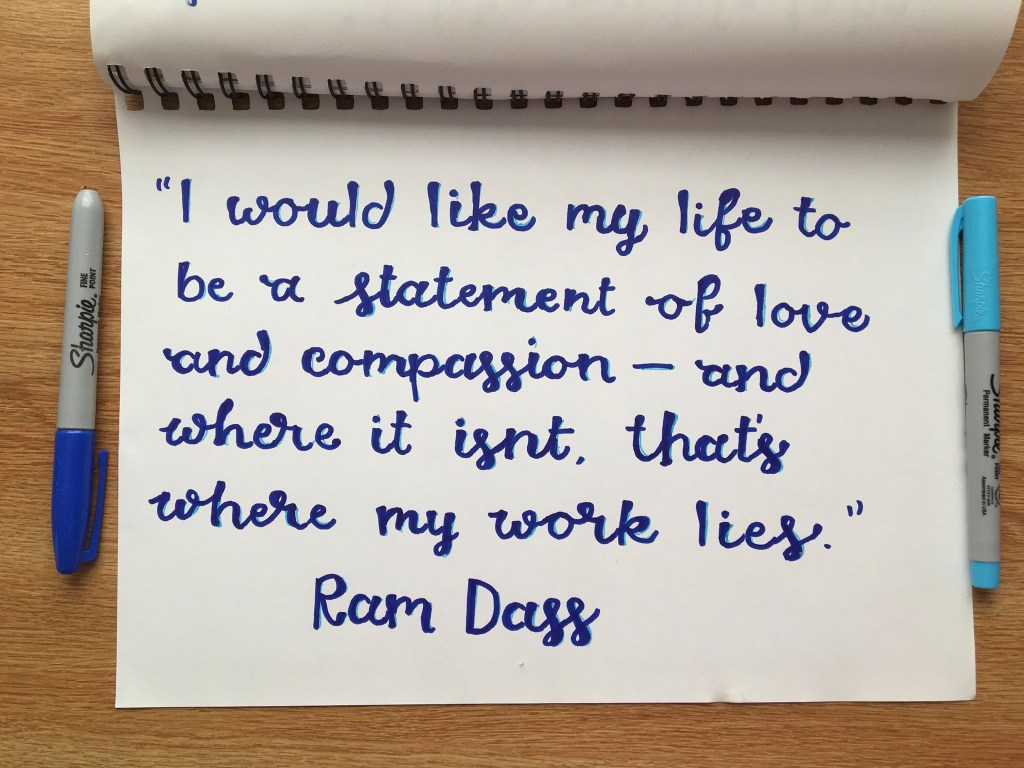 "I would like my life to
be a statement of love
and compassion – and
where it isnt, that's
where my work lies."
Ram Dass
Sharpie. FINE POINT
Sharpie
Sharpie.
Permanent Marker